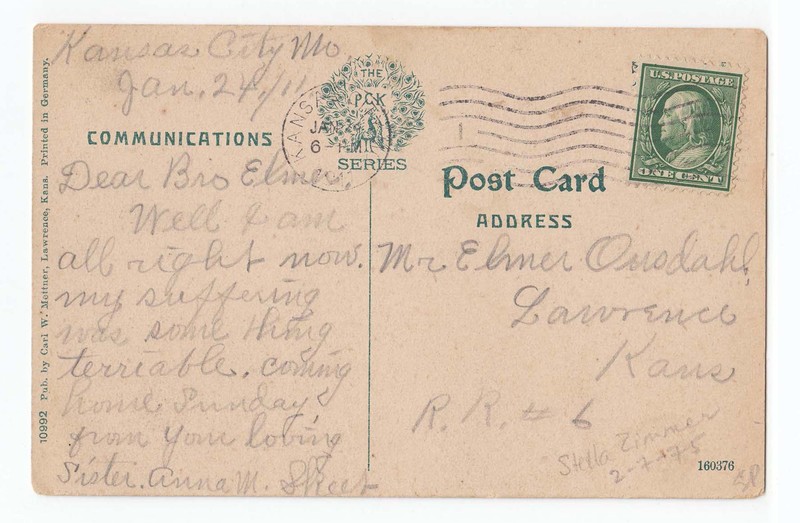 Kansas City Mo
Jan. 24/11
COMMUNICATIONS
Dear Bro Elmer.
Well I am
all right now.
my suffering
was some thing
terriable. coming
home Sunday
from your loving
Sister. Anna M. Skeet
THE
PCK
SERIES
KANSAS
JAN 24
6
1
U.S. POSTAGE
ONE CENT
Post Card
ADDRESS
Mr Elmer Ousdahl,
Lawrence
Kans
R. R. # 6
Stella Zimmer
2-7-75
160376
10992 Pub. by Carl W. Mettner, Lawrence, Kans. Printed in Germany.